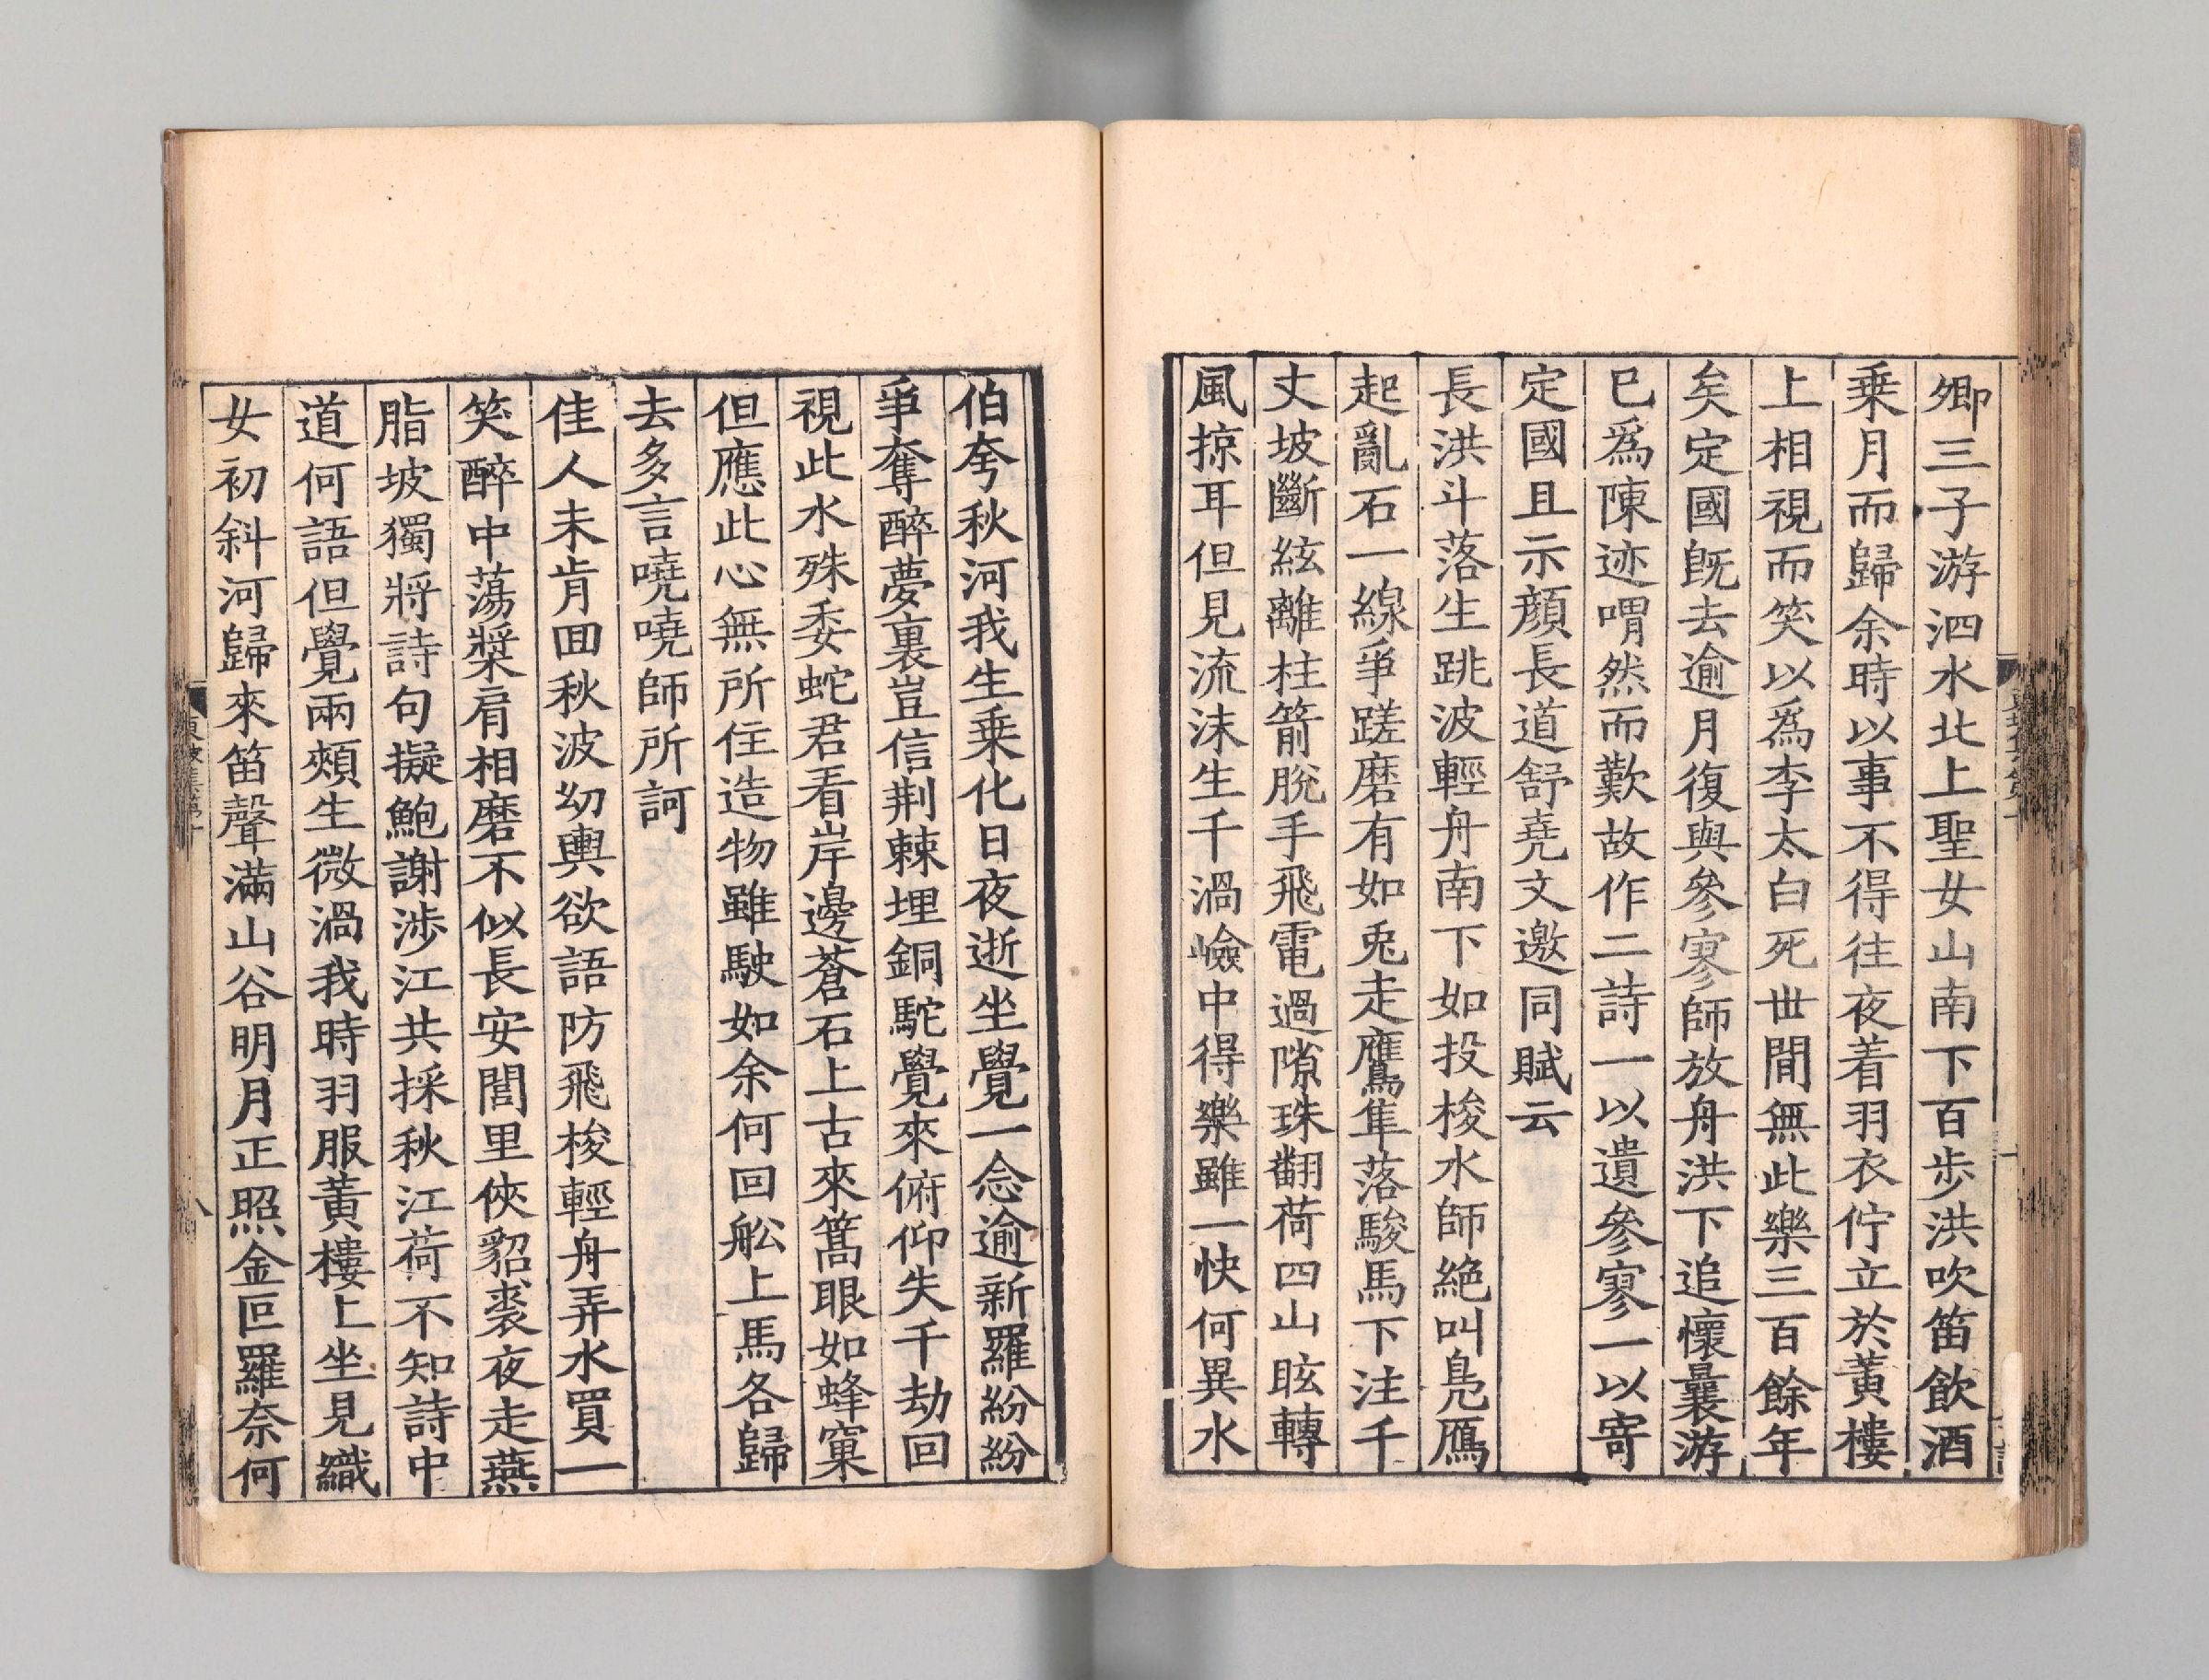 卿三子游泗水北上聖女山南下百步洪吹笛飲酒
乗月而歸余時以事不得往夜着羽衣佇立於黃樓
上相視而笑以爲李太白死世間無此樂三百餘年
矣定國旣去逾月復與參寥師放舟洪下追懷曩游
已爲陳迹喟然而歎故作二詩一以遺參寥一以寄
定國且示顏長道舒堯文邀同賦云
長洪斗落生跳波輕舟南下如投梭水師絶叫鳧鴈
起亂石一線爭蹉磨有如兎走鷹隼落駿馬下注千
丈坡斷絃離柱箭脫手飛電過隙珠翻荷四山眩轉
風掠耳但見流沫生千渦嶮中得樂雖一快何異水
伯夸秋河我生乗化日夜逝坐覺一念逾新羅紛紛
爭奪醉夢裏豈信荆棘埋銅駝覺來俯仰失千劫回
視此水殊委蛇君看岸邊蒼石上古來篙眼如蜂窠
但應此心無所住造物雖駛如余何回舩上馬各歸
去多言譊譊師所訶
佳人未肯回秋波幼輿欲語防飛梭輕舟弄水買一
笑醉中蕩槳肩相磨不似長安閭里俠貂裘夜走燕
脂坡獨將詩句擬鮑謝涉江共採秋江荷不知詩中
道何語但覺兩頰生微渦我時羽服黃樓上坐見織
女初斜河歸來笛聲滿山谷明月正照金叵羅奈何
東坡集第十
八